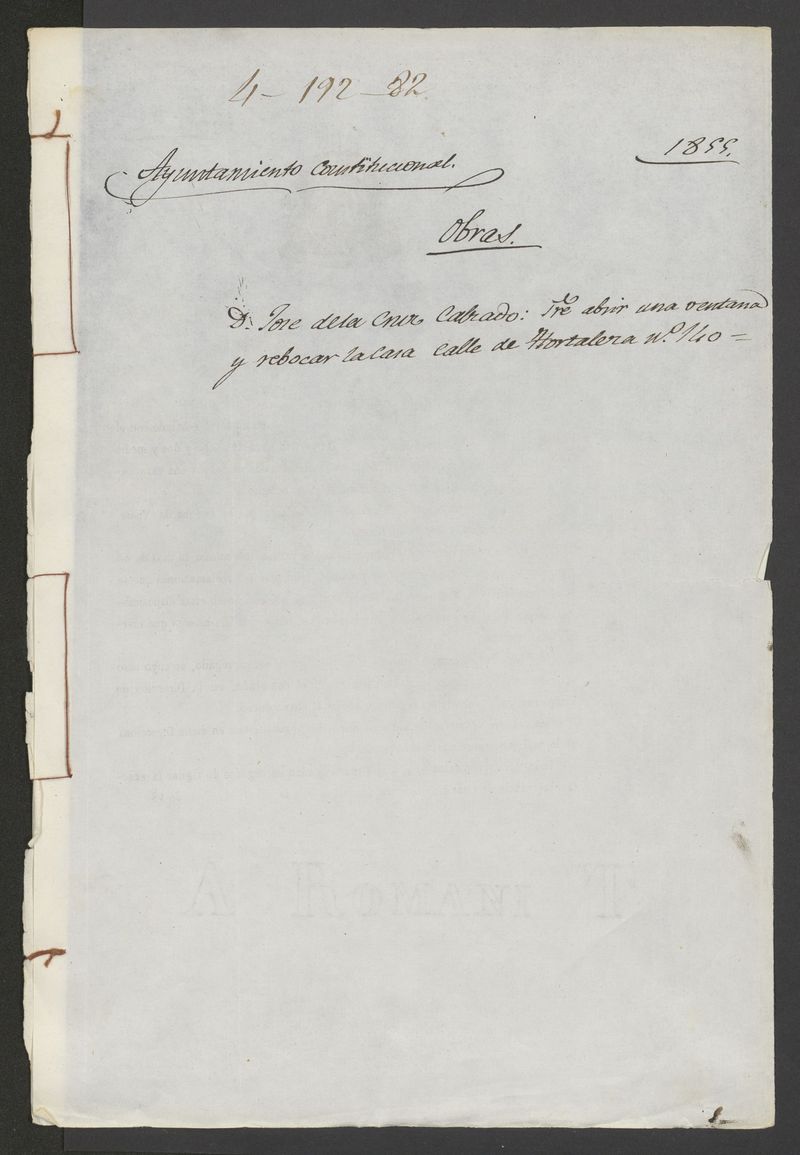 4 - 192 - 82
1855.
Ayuntamiento Constitucional.
Obras.
D. Jose de la Cruz Calzado: Sre abrir una ventana
y rebocar la casa Calle de Hortaleza n.º 140 =